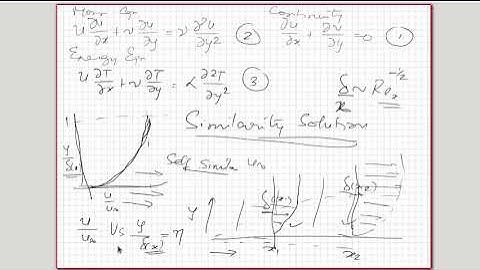 Mom Eqn
u ∂u/∂x + v ∂u/∂y = ν ∂²u/∂y² ②
Continuity
∂u/∂x + ∂v/∂y = 0 ①
Energy Eqn
u ∂T/∂x + v ∂T/∂y = α ∂²T/∂y² ③
δ/x ~ Re_x^{-1/2}
Similarity Solution
1
y/δ(x)
u/u∞
Self Similar
y
δ(x1)
δ(x2)
x1
x2
u/u∞ Vs y/δ(x) = η